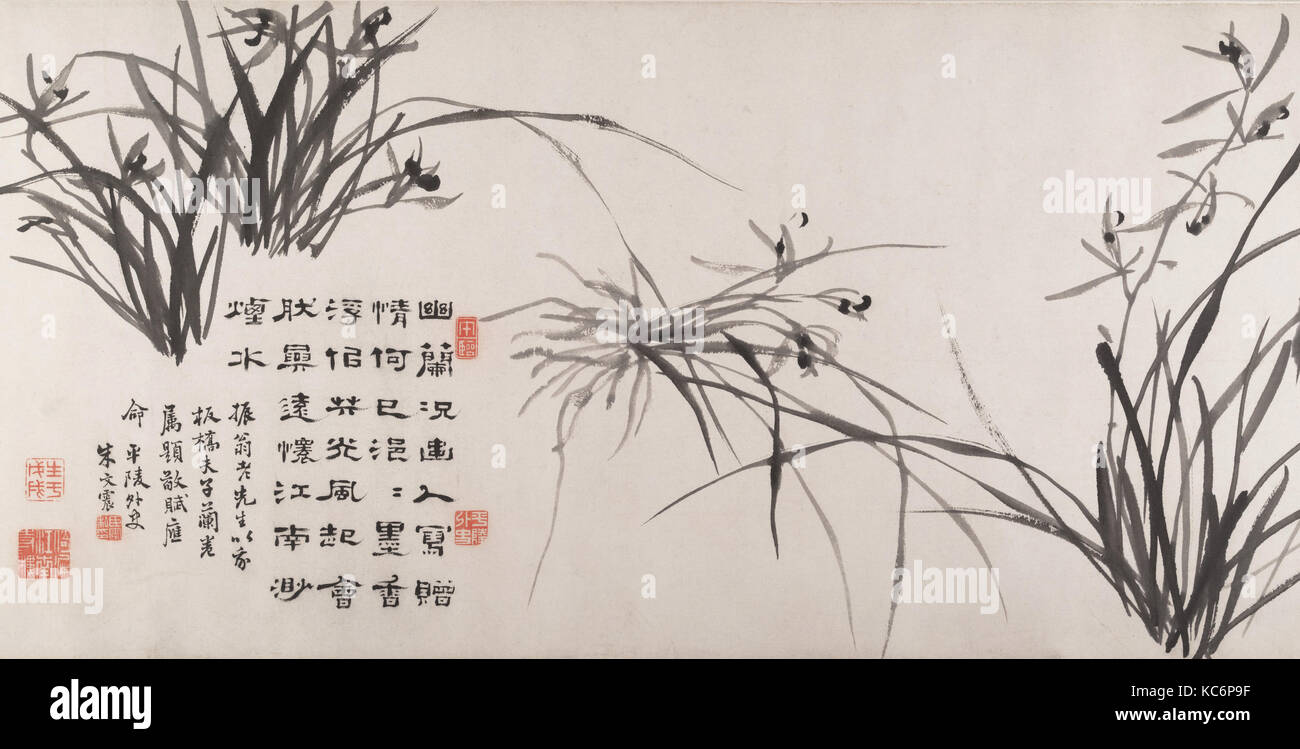 幽蘭況幽人寫贈
情何已浥〻墨香
浮佀共光風起會
朕異遠懷江南渺
煙水
振翁老先生以家
板橋夫子蘭卷
屬題敬賦應
命 平陵外史
朱文震
alamy
alamy stock photo
KC6P9F
www.alamy.com